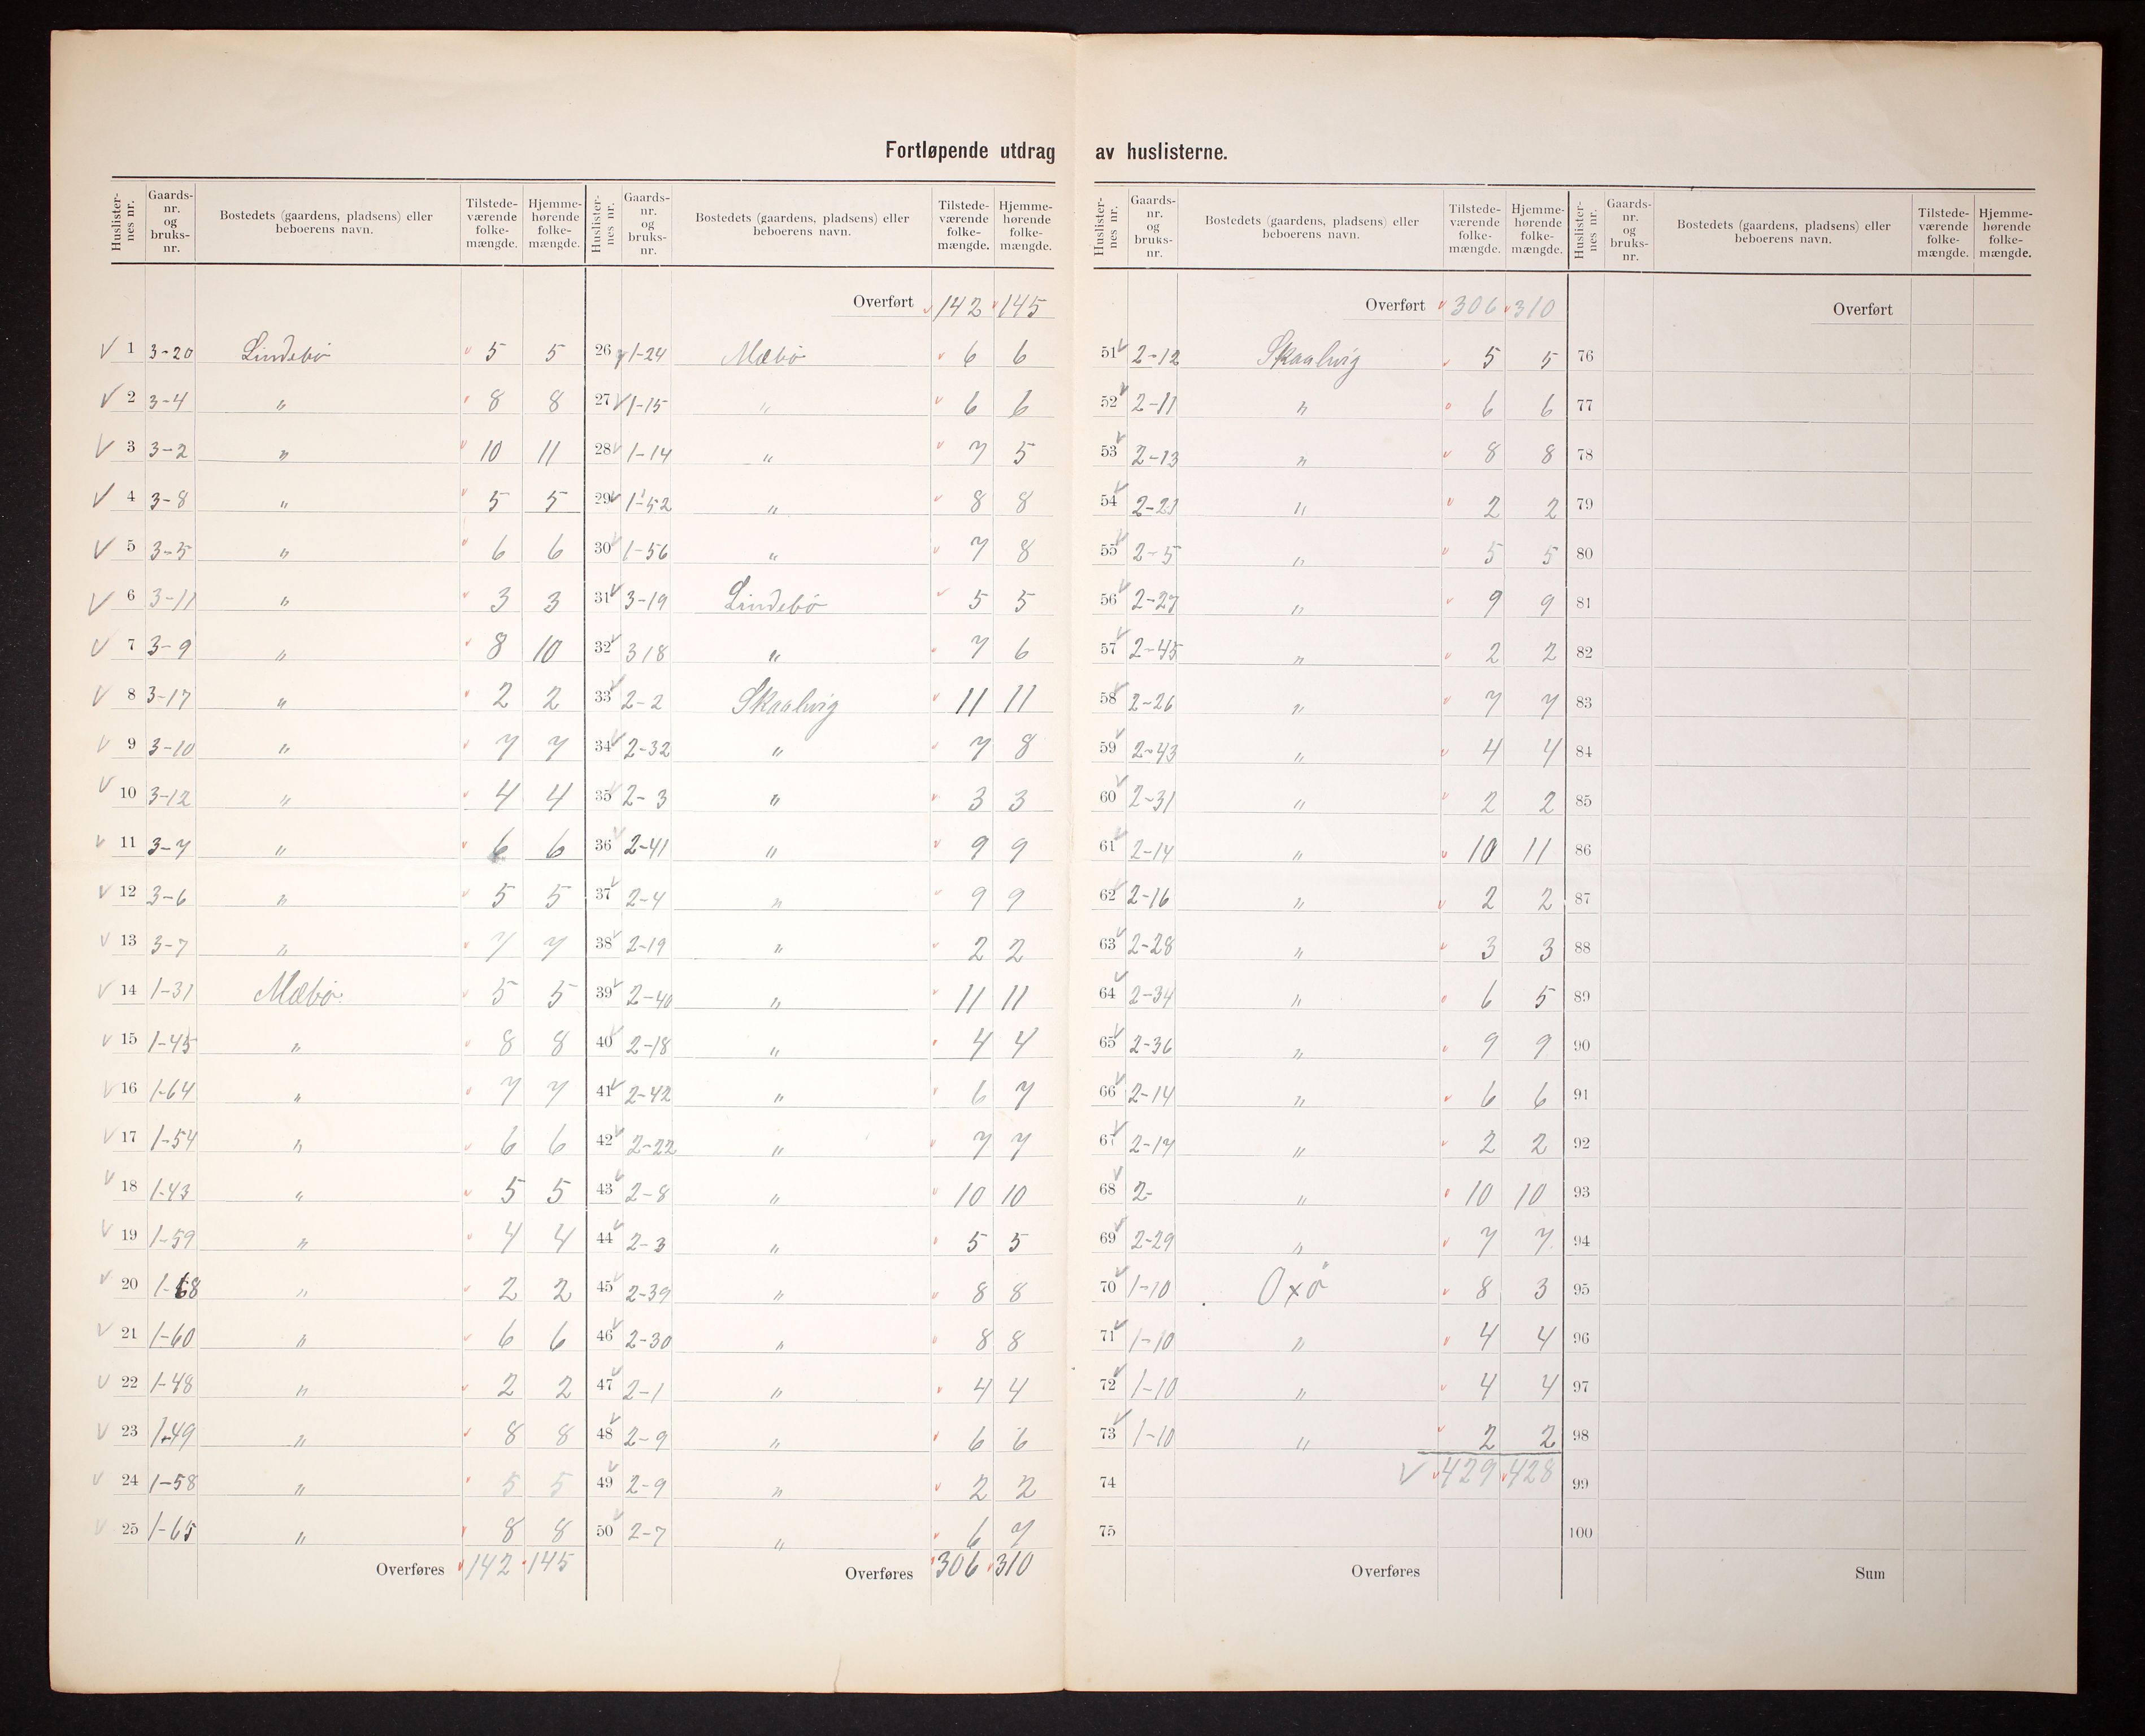 Fortløpende utdrag av huslisterne.
Huslister-nes nr. Gaards-nr. og bruks-nr. Bostedets (gaardens, pladsens) eller beboerens navn. Tilstede-værende folke-mængde. Hjemme-hørende folke-mængde.
V 1 3-20 Lindebö 5 5
V 2 3-4 " 8 8
V 3 3-2 " 10 11
V 4 3-8 " 5 5
V 5 3-5 " 6 6
V 6 3-11 " 3 3
V 7 3-9 " 8 10
V 8 3-17 " 2 2
V 9 3-10 " 7 7
V 10 3-12 " 4 4
V 11 3-7 " 6 6
V 12 3-6 " 5 5
V 13 3-7 " 7 7
V 14 1-31 Mæbö 5 5
V 15 1-45 " 8 8
V 16 1-64 " 7 7
V 17 1-54 " 6 6
V 18 1-43 " 5 5
V 19 1-59 " 4 4
V 20 1-68 " 2 2
V 21 1-60 " 6 6
V 22 1-48 " 2 2
V 23 1-49 " 8 8
V 24 1-58 " 5 5
V 25 1-65 " 8 8
Overføres 142 145
Huslister-nes nr. Gaards-nr. og bruks-nr. Bostedets (gaardens, pladsens) eller beboerens navn. Tilstede-værende folke-mængde. Hjemme-hørende folke-mængde.
Overført 142 145
26 1-24 Mæbö 6 6
27 1-15 " 6 6
28 1-14 " 7 5
29 1-52 " 8 8
30 1-56 " 7 8
31 3-19 Lindebö 5 5
32 318 " 7 6
33 2-2 Skaalvig 11 11
34 2-32 " 7 8
35 2-3 " 3 3
36 2-41 " 9 9
37 2-4 " 9 9
38 2-19 " 2 2
39 2-40 " 11 11
40 2-18 " 4 4
41 2-42 " 6 7
42 2-22 " 7 7
43 2-8 " 10 10
44 2-3 " 5 5
45 2-39 " 8 8
46 2-30 " 8 8
47 2-1 " 4 4
48 2-9 " 6 6
49 2-9 " 2 2
50 2-7 " 6 7
Overføres 306 310
Huslister-nes nr. Gaards-nr. og bruks-nr. Bostedets (gaardens, pladsens) eller beboerens navn. Tilstede-værende folke-mængde. Hjemme-hørende folke-mængde.
Overført 306 310
51 2-12 Skaalvig 5 5
52 2-11 " 6 6
53 2-13 " 8 8
54 2-21 " 2 2
55 2-5 " 5 5
56 2-27 " 9 9
57 2-45 " 2 2
58 2-26 " 7 7
59 2-43 " 4 4
60 2-31 " 2 2
61 2-14 " 10 11
62 2-16 " 2 2
63 2-28 " 3 3
64 2-34 " 6 5
65 2-36 " 9 9
66 2-14 " 6 6
67 2-17 " 2 2
68 2- " 10 10
69 2-29 " 7 7
70 1-10 Oxö 8 3
71 1-10 " 4 4
72 1-10 " 4 4
73 1-10 " 2 2
74 V 429 428
75
Overføres
Huslister-nes nr. Gaards-nr. og bruks-nr. Bostedets (gaardens, pladsens) eller beboerens navn. Tilstede-værende folke-mængde. Hjemme-hørende folke-mængde.
Overført
76
77
78
79
80
81
82
83
84
85
86
87
88
89
90
91
92
93
94
95
96
97
98
99
100
Sum